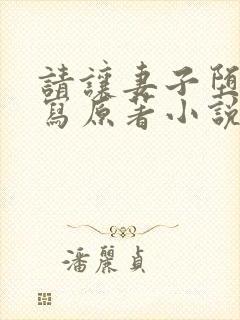 請讓妻子墮
寫原著小說
潘麗貞